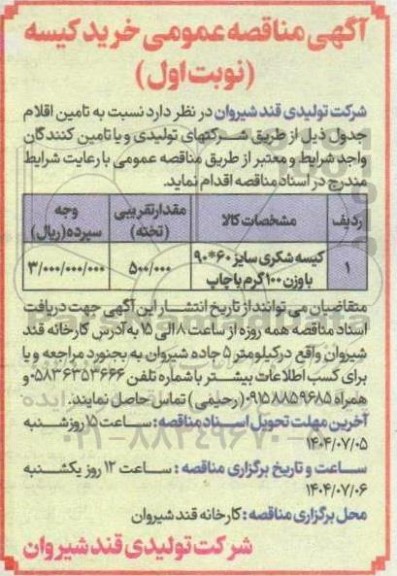 آگهی مناقصه عمومی خرید کیسه
(نوبت اول)
شرکت تولیدی قند شیروان در نظر دارد نسبت به تامین اقلام
جدول ذیل از طریق شرکتهای تولیدی و یا تامین کنندگان
واجد شرایط و معتبر از طریق مناقصه عمومی با رعایت شرایط
مندرج در اسناد مناقصه اقدام نماید.
ردیف مشخصات کالا مقدار تقریبی (تخته) وجه سپرده (ریال)
۱ کیسه شکری سایز ۶۰*۹۰ با وزن ۱۰۰ گرم با چاپ ۵۰۰/۰۰۰ ۳/۰۰۰/۰۰۰/۰۰۰
متقاضیان می توانند از تاریخ انتشار این آگهی جهت دریافت
اسناد مناقصه همه روزه از ساعت ۸ الی ۱۵ به آدرس کارخانه قند
شیروان واقع در کیلومتر ۵ جاده شیروان به بجنورد مراجعه و یا
برای کسب اطلاعات بیشتر با شماره تلفن ۰۵۸۳۶۳۵۳۶۶۶ و
همراه ۰۹۱۵۸۸۵۹۶۸۵ (رحیمی) تماس حاصل نمایند.
آخرین مهلت تحویل اسناد مناقصه: ساعت ۱۵ روز شنبه
۱۴۰۴/۰۷/۰۵
ساعت و تاریخ برگزاری مناقصه: ساعت ۱۲ روز یکشنبه
۱۴۰۴/۰۷/۰۶
محل برگزاری مناقصه: کارخانه قند شیروان
شرکت تولیدی قند شیروان
۰۲۱-۸۸۳۴۹۶۷۰-۵